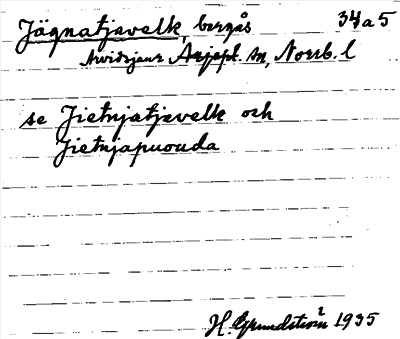 Jägnatjavelk, bergås 34a5
Arvidsjaur Arjepl. m, Norrb. l
se Jietnjatjevelk och
Jietnjapuouda
H. Grundström 1935